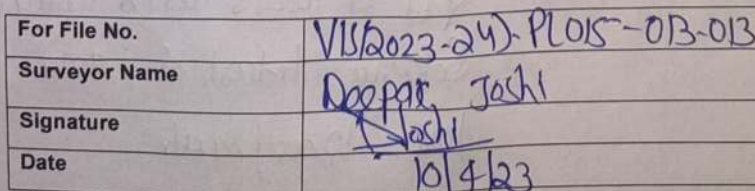 For File No. VIS(2023-24)-PL015-013-013
Surveyor Name Deepak Joshi
Signature Joshi
Date 10/4/23